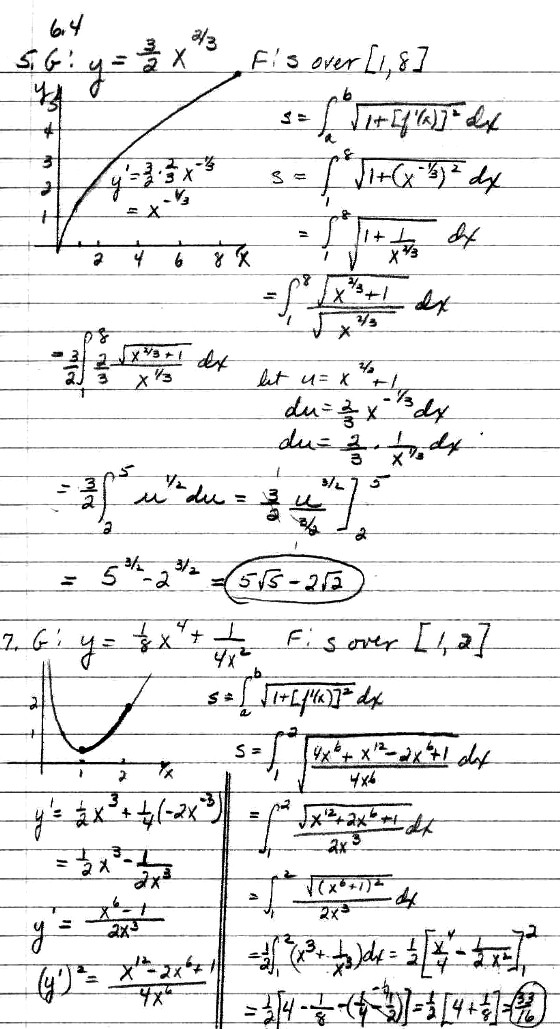 6.4
5. G: y = 3/2 x^(2/3)   F: s over [1,8]
y
5
4
3
2
1
2 4 6 8 x
y' = 3/2 · 2/3 x^(-1/3)
= x^(-1/3)
s = ∫_a^b √(1+[f'(x)]²) dx
s = ∫_1^8 √(1+(x^(-1/3))²) dx
= ∫_1^8 √(1 + 1/x^(2/3)) dx
= ∫_1^8 √(x^(2/3)+1) / √(x^(2/3)) dx
= 3/2 ∫_1^8 2/3 √(x^(2/3)+1) / x^(1/3) dx
let u = x^(2/3) + 1
du = 2/3 x^(-1/3) dx
du = 2/3 · 1/x^(1/3) dx
= 3/2 ∫_2^5 u^(1/2) du = 3/2 u^(3/2)/(3/2) ]_2^5
= 5^(3/2) - 2^(3/2) = 5√5 - 2√2
7. G: y = 1/8 x^4 + 1/(4x²)   F: s over [1,2]
2
1
1 2 x
s = ∫_a^b √(1+[f'(x)]²) dx
s = ∫_1^2 √((4x^6 + x^12 - 2x^6 + 1)/(4x^6)) dx
y' = 1/2 x³ + 1/4(-2x^(-3))
= 1/2 x³ - 1/(2x³)
y' = (x^6 - 1)/(2x³)
(y')² = (x^12 - 2x^6 + 1)/(4x^6)
= ∫_1^2 √(x^12 + 2x^6 + 1)/(2x³) dx
= ∫_1^2 √((x^6+1)²)/(2x³) dx
= 1/2 ∫_1^2 (x³ + 1/x³) dx = 1/2 [x^4/4 - 1/(2x²)]_1^2
= 1/2 [4 - 1/8 - (1/4 - 1/2)] = 1/2 [4 + 1/8] = 33/16